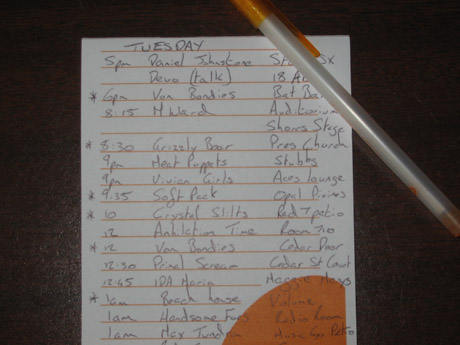 TUESDAY
5pm Daniel Johnstone
Devo (talk) 18.
* 6pm Von Bondies Bat Bar
8:15 M Ward Auditorium
Shores Stage
* 8:30 Grizzly Bear Pres Church
9pm Meat Puppets Stubbs
9pm Vivian Girls Aces Lounge
* 9:35 Soft Pack Opal
* 10 Crystal Stilts Red 7 patio
12 Time Room 710
* 12 Von Bondies Cedar Door
12:30 Primal Scream Cedar St Court
12:45 IDA Maria Maggie Mays
* 1am Beach house Volume
1am Handsome Furs Radio Room
1am Max Patio